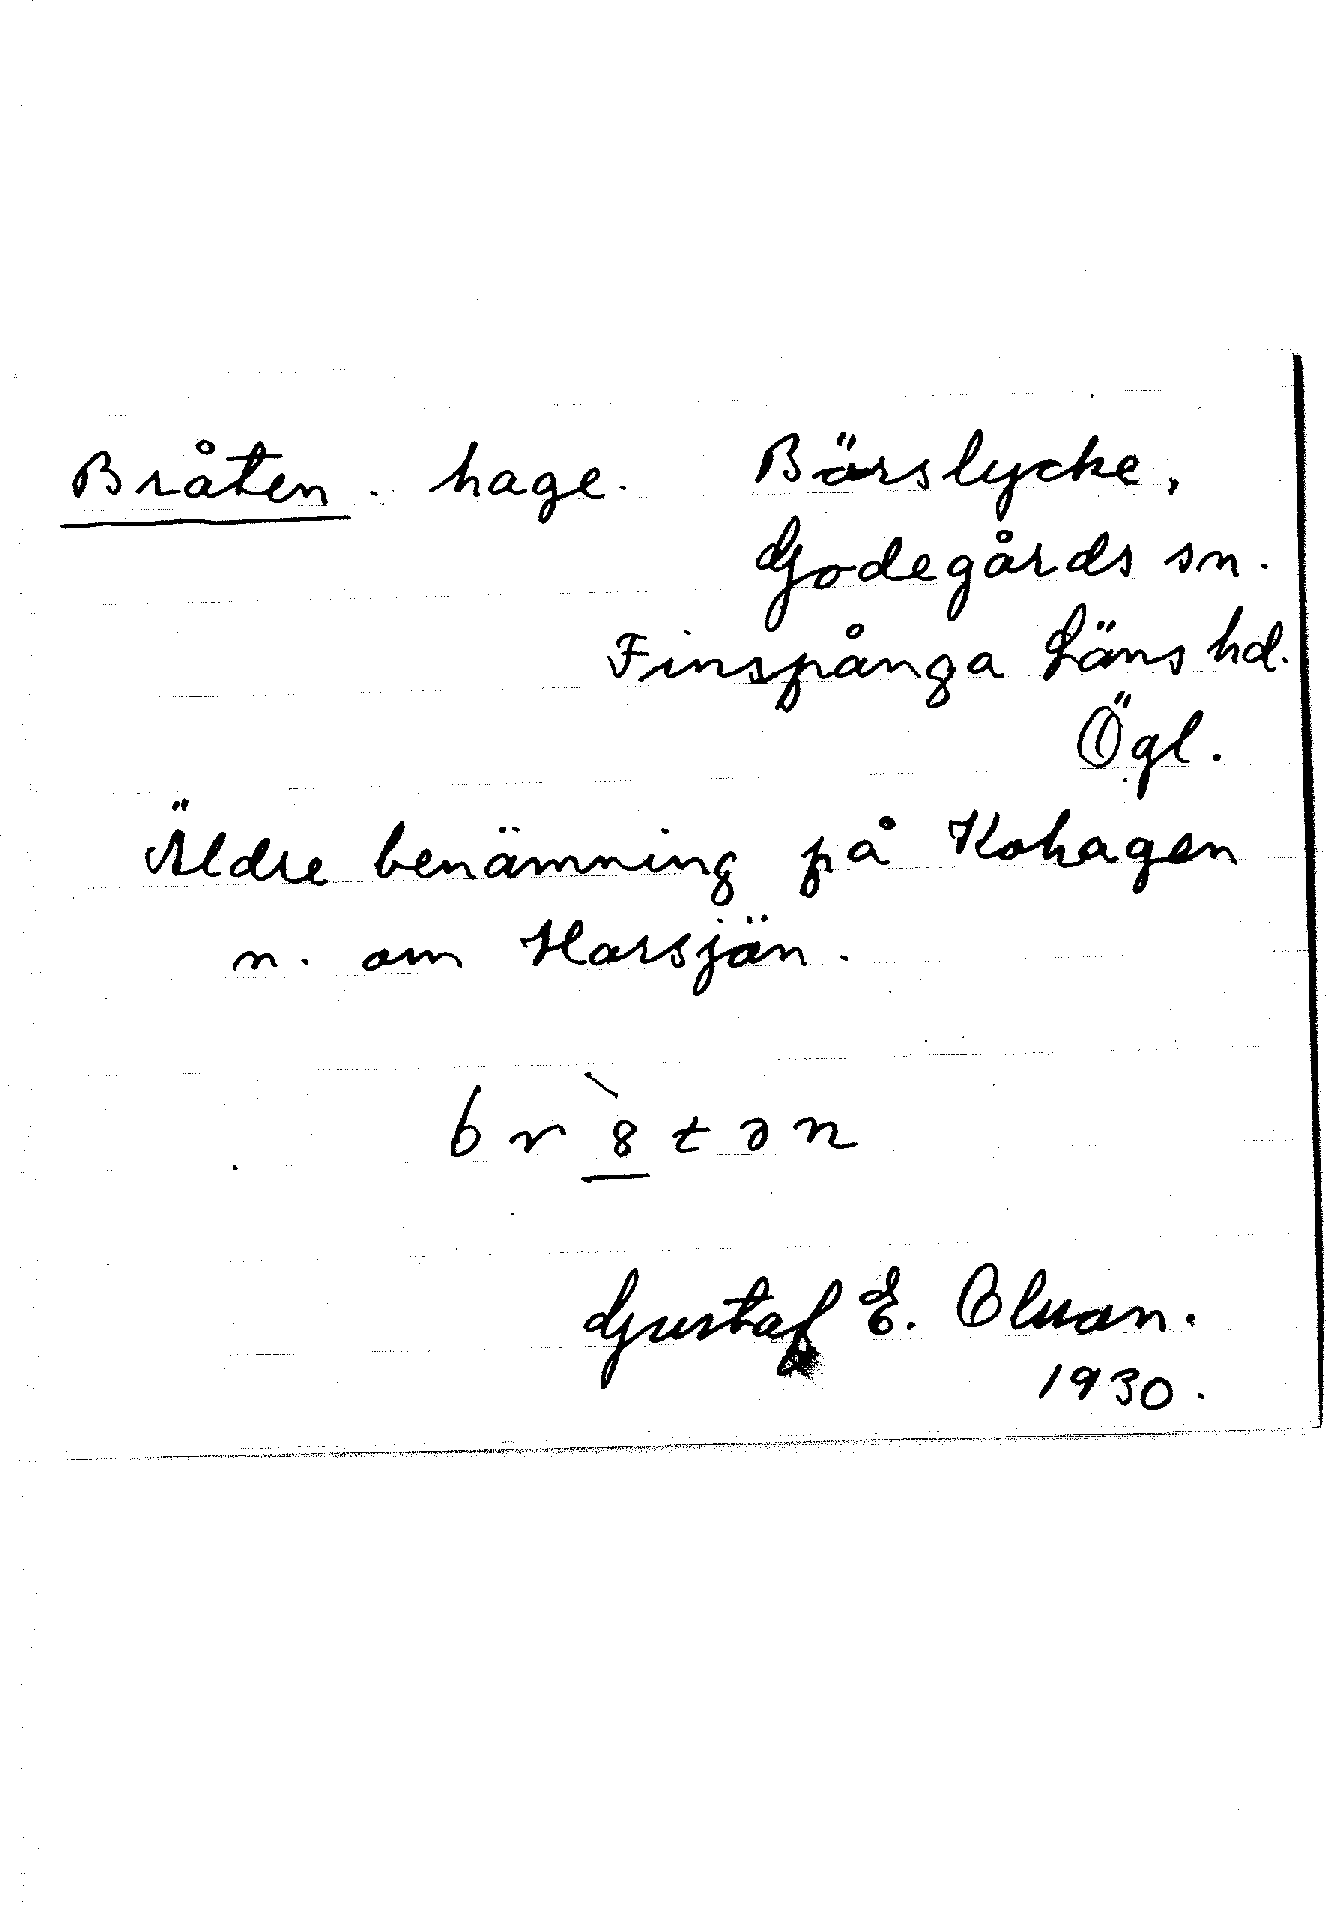 Bråten. hage. Börslycke,
Godegårds sn.
Finspånga Läns hd.
Ögl.
Äldre benämning på Kohagen
n. om Horsjön.
br8̱̀tən
Gustaf E.
1930.